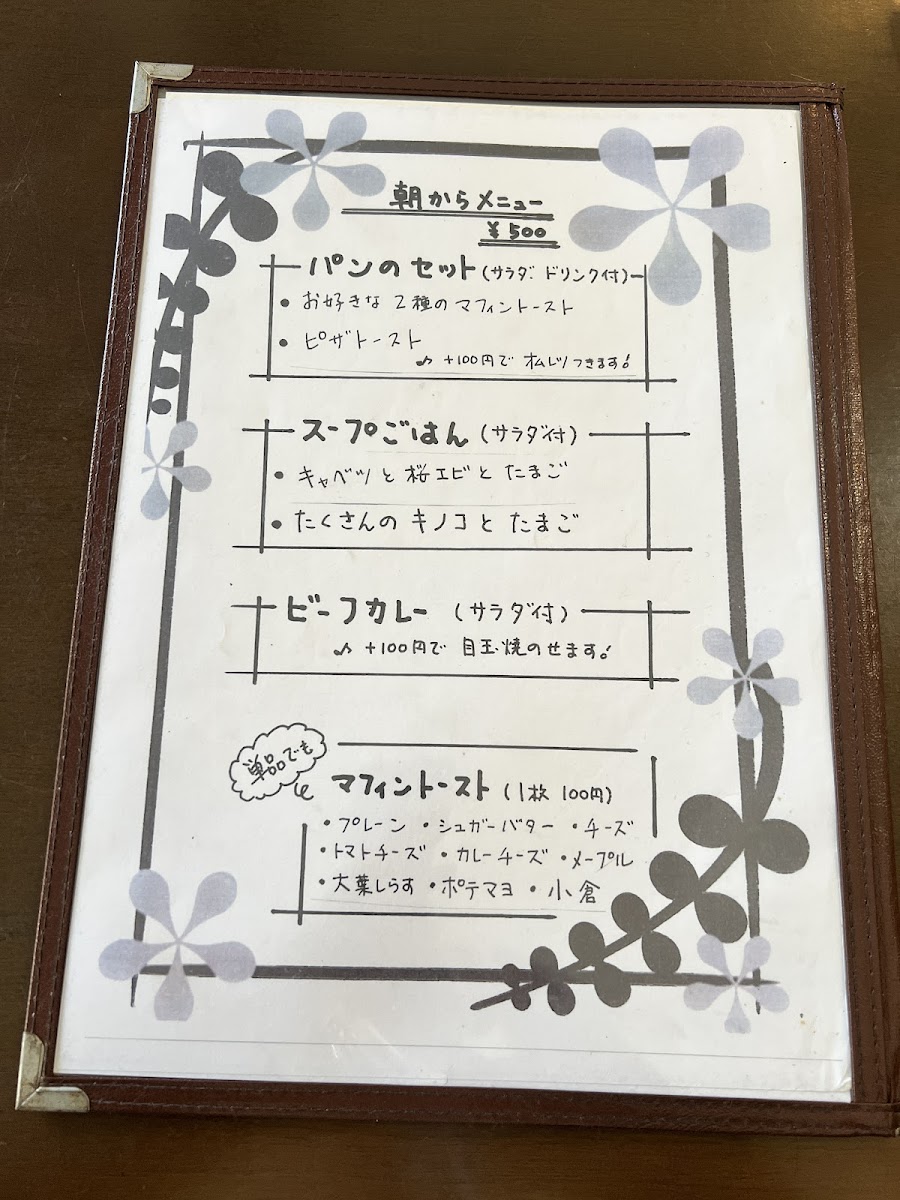 朝からメニュー
¥500
パンのセット(サラダ・ドリンク付)
• お好きな2種のマフィントースト
• ピザトースト
♪ +100円で オムレツつきます!
スープごはん (サラダ付)
• キャベツと桜エビとたまご
• たくさんのキノコとたまご
ビーフカレー (サラダ付)
♪ +100円で 目玉焼のせます!
単品でも
マフィントースト (1枚 100円)
・プレーン ・シュガーバター ・チーズ
・トマトチーズ ・カレーチーズ ・メープル
・大葉しらす ・ポテマヨ ・小倉